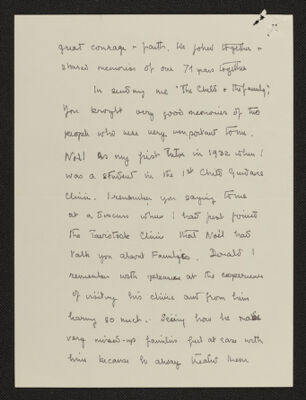 great courage + faith. We joked together +
shared memories of our 71 years together
In sending me "The Child + the Family",
you brought very good memories of two
people who were very important to me.
Noël as my first tutor in 1932 when I
was a student in the 1st Child Guidance
Clinic. I remember you saying to me
at a Seminar when I had just joined
the Tavistock Clinic that Noël had
talked to you about Families. Donald I
remember with pleasure at the experience
of visiting his clinic and from him
learning so much. Seeing how he made
very mixed-up families feel at ease with
him because he always treated them